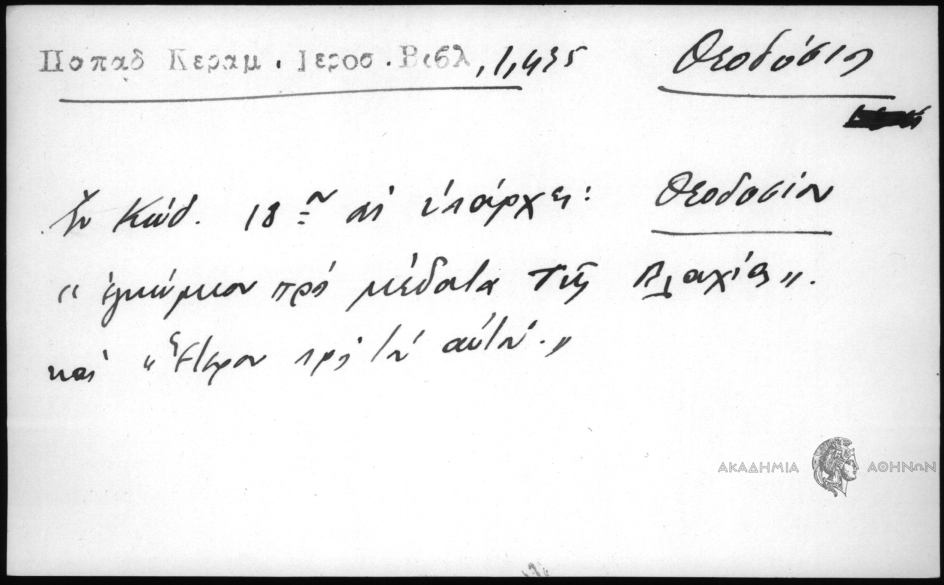 Παπαδ Κεραμ. Ιεροσ. Βιβλ, 1,435 Θεοδόσιος
Ἐν Κώδ. 18ου αἰ ὑπάρχει: Θεοδοσίου
“ἐγκώμιον πρὸς τῆς Βλαχίας”.
καὶ “Ἕτερον πρὸς τὸν αὐτόν.”
ΑΚΑΔΗΜΙΑ ΑΘΗΝΩΝ